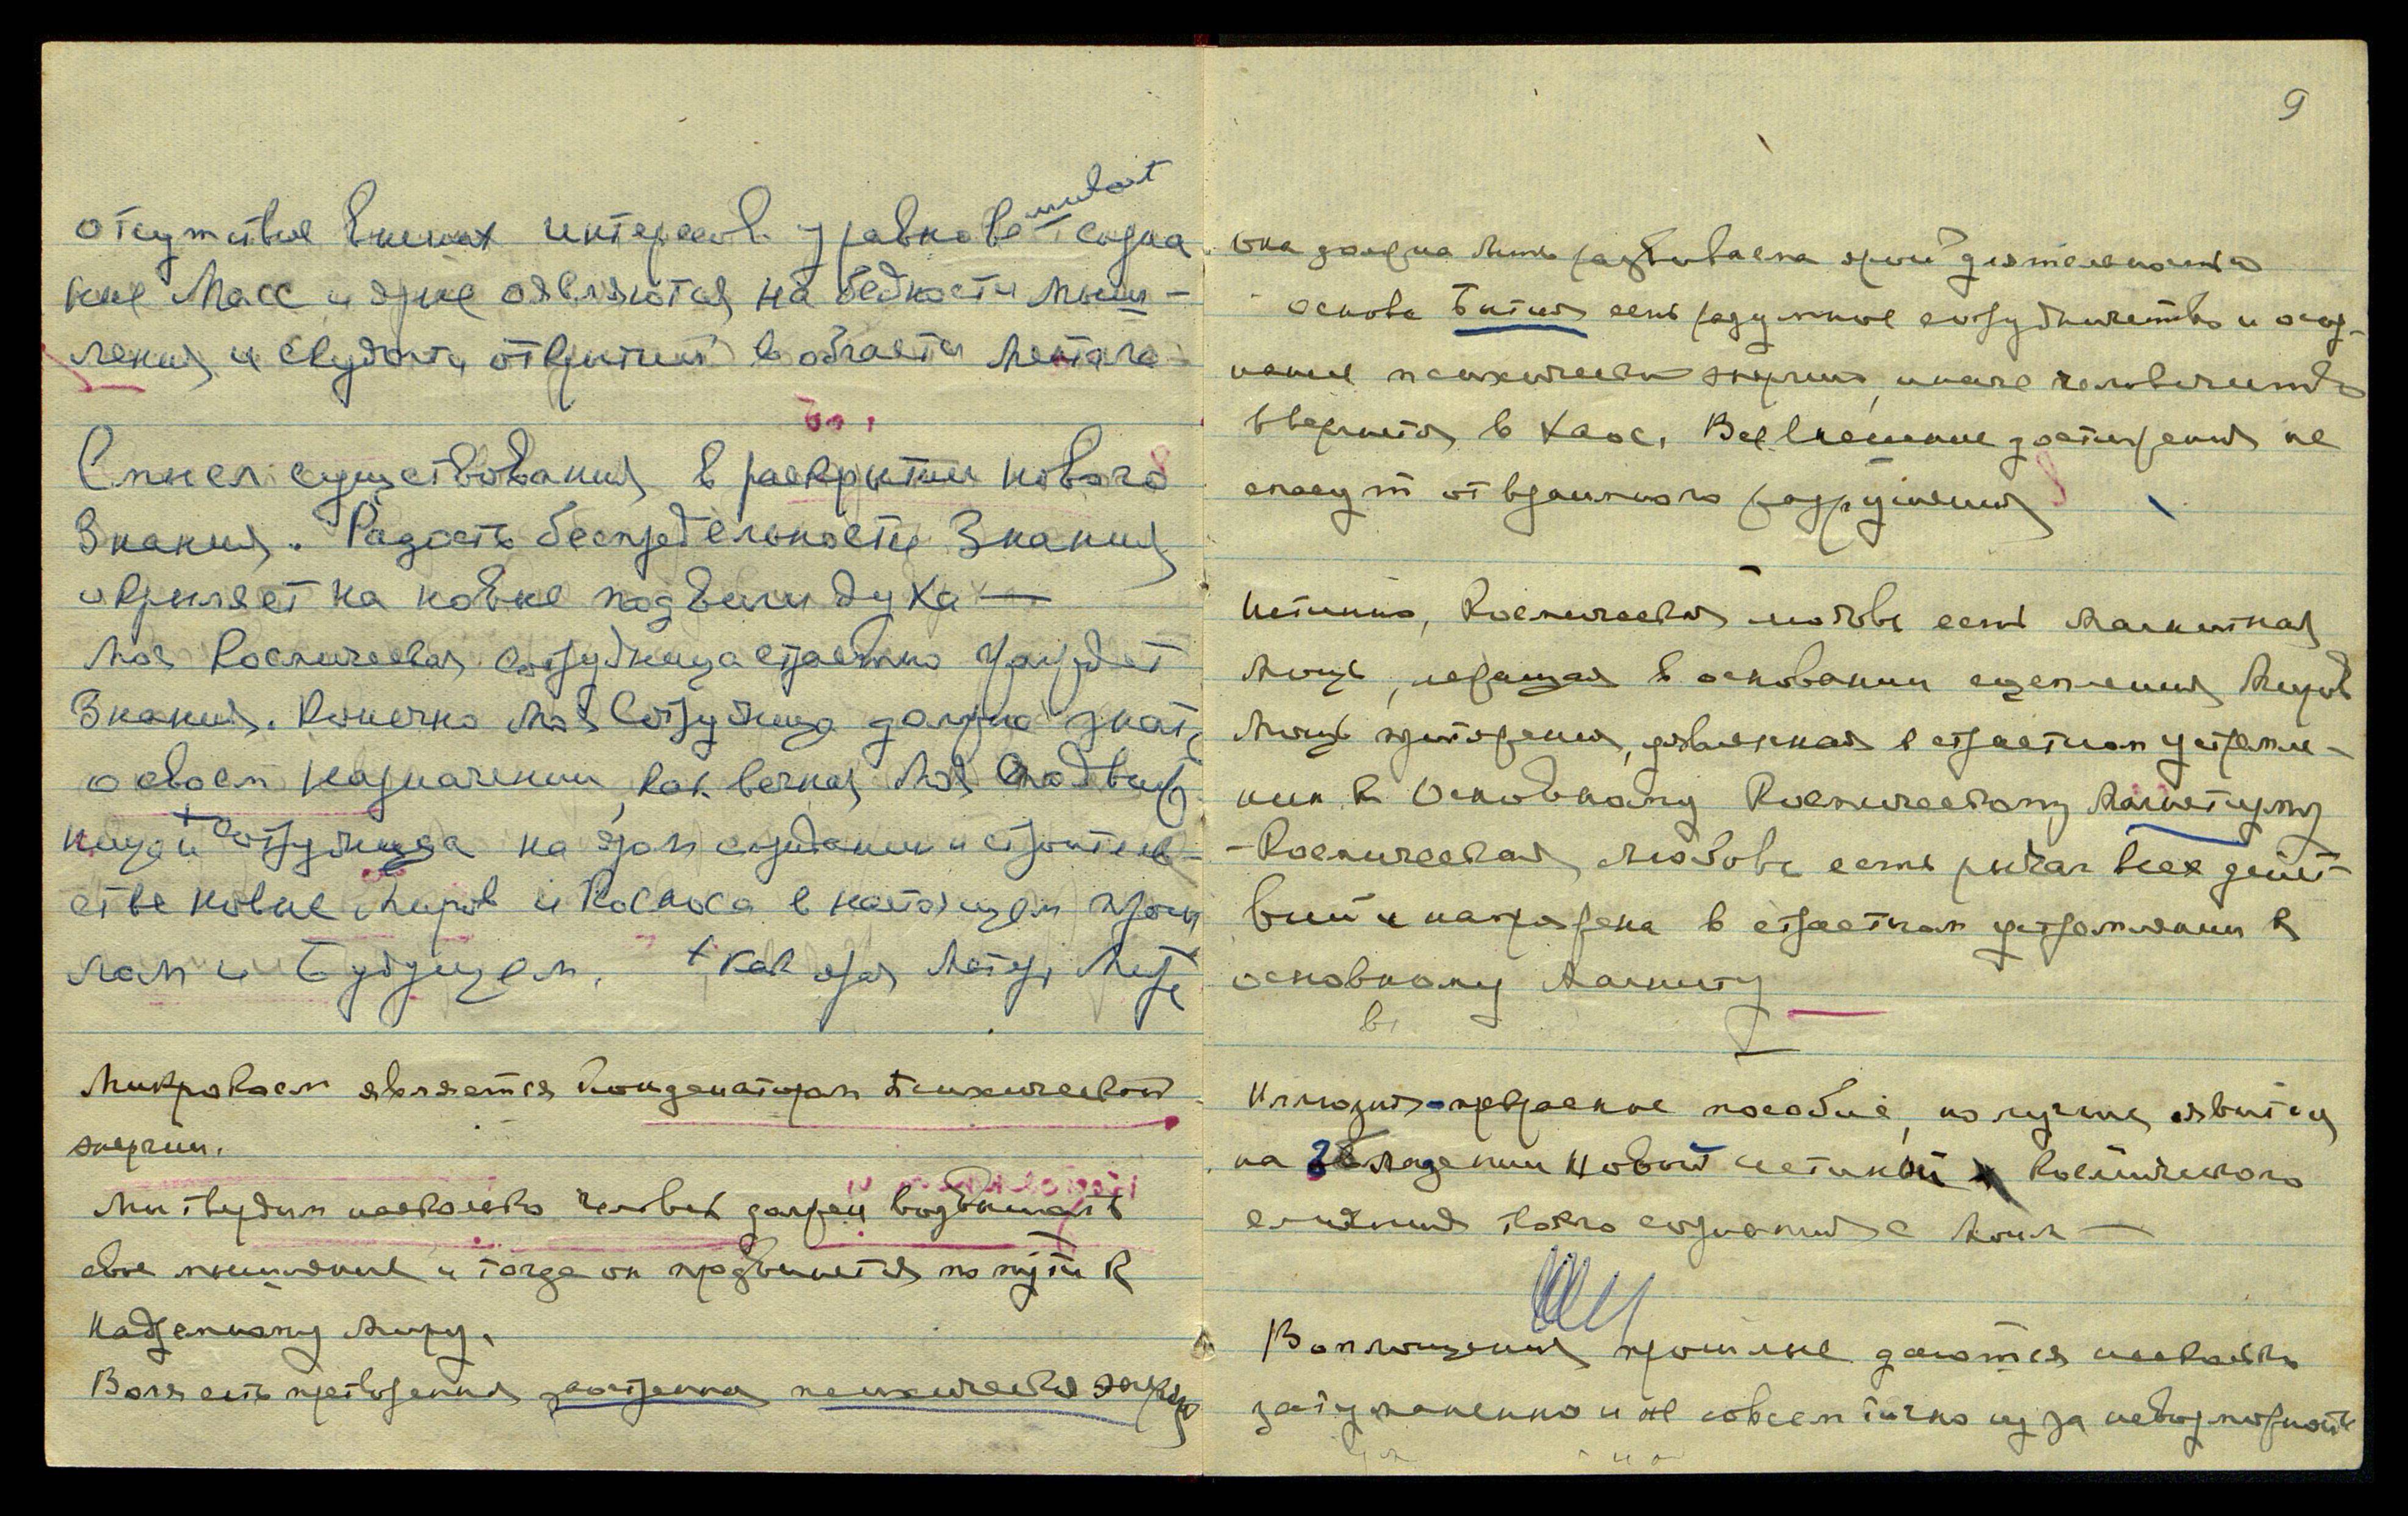 отсутствие высших интересов уравновешивает созна
ние Масс и ярые оявляются на бедности мыш-
ления и скудости открытий в области
Смысл существования в раскрытии нового
Знания. Радость беспредельности Знания
окрыляет на новые подвиги духа —
Моя Космическая Сотрудница страстно жаждет
Знания. Конечно Моя Сотрудница должна знать
о своем назначении, как вечная Моя Сподвиж
ница и + Сотрудница на яром созидании и строитель-
стве новых Миров и Космоса в настоящем прош
лом и Будущем. + Как ярая Матерь Мира
Микрокосм является Конденсатором психической
энергии.
Мы твердим насколько человек должен возвышать
свое мышление и тогда он продвинется по пути к
Надземному Миру.
Воля есть претворенная заостренная психическая энергия
9
она должна быть развиваема ярой деятельностью
основа Бытия есть разумное сотрудничество и осоз-
нание психической энергии, иначе человечество
ввергнется в Хаос. Все внешние достижения не
спасут от взаимного разрушения
Истинно, Космическая любовь есть Магнитная
Мощь, лежащая в основании сцепления Миров
Мощь притяжения, явленная в страстном устремле-
нии к Основному Космическому Магниту
- Космическая любовь есть рычаг всех дейст
вий и напряжена в страстном устремлении к
основному Магниту
Иллюзия - прекрасное пособие, но лучше явиться
на овладении Новой истиной Космического
слияния твоего сознания с Моим —
Воплощения прошлые даются несколько
затуманенно и не совсем точно из за невозможности